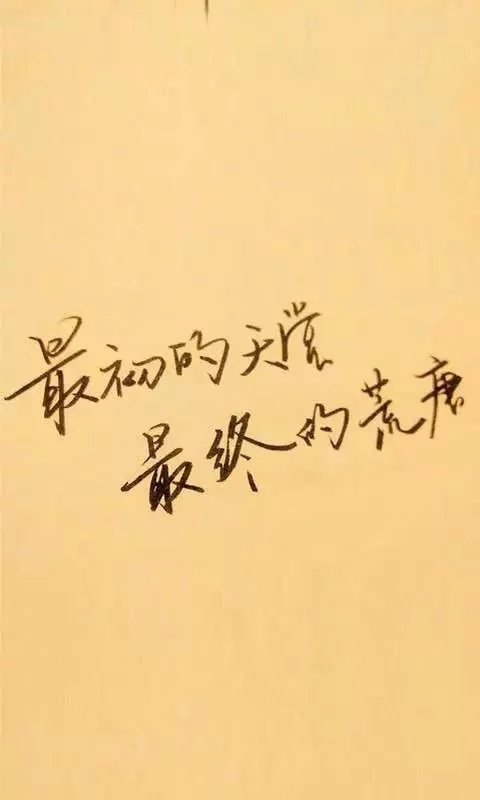 最初的天堂
最终的荒唐